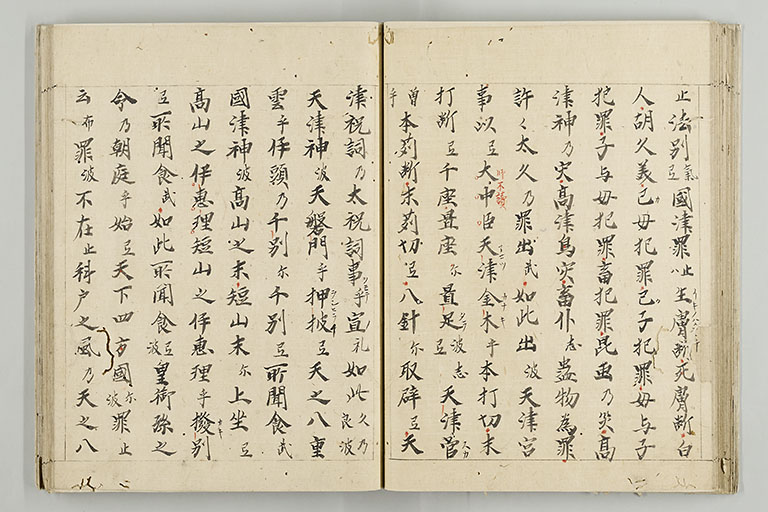 止法別気国津罪止八生膚断死膚断白
人胡久美己母犯罪己子犯罪母与子
犯罪子与母犯罪畜犯罪昆虫乃災高
津神乃災高津鳥災畜仆志蠱物為罪
許々太久乃罪出武如此出波天津宮
事以弖大中臣天津金木乎本打切末
打断弖千座置座尓置足波志弖天津菅
曽乎本苅断末苅切弖八針尓取辟弖天
津祝詞乃太祝詞事乎宣礼如此久乃良波
天津神波天磐門乎押披弖天之八重
雲乎伊頭乃千別尓千別弖所聞食武
國津神波高山之末短山末尓上坐弖
高山之伊恵理短山之伊恵理乎撥別
弖所聞食武如此所聞食弖波皇御孫之
命乃朝庭乎始弖天下四方國尓波罪止
云布罪波不在止科戸之風乃天之八